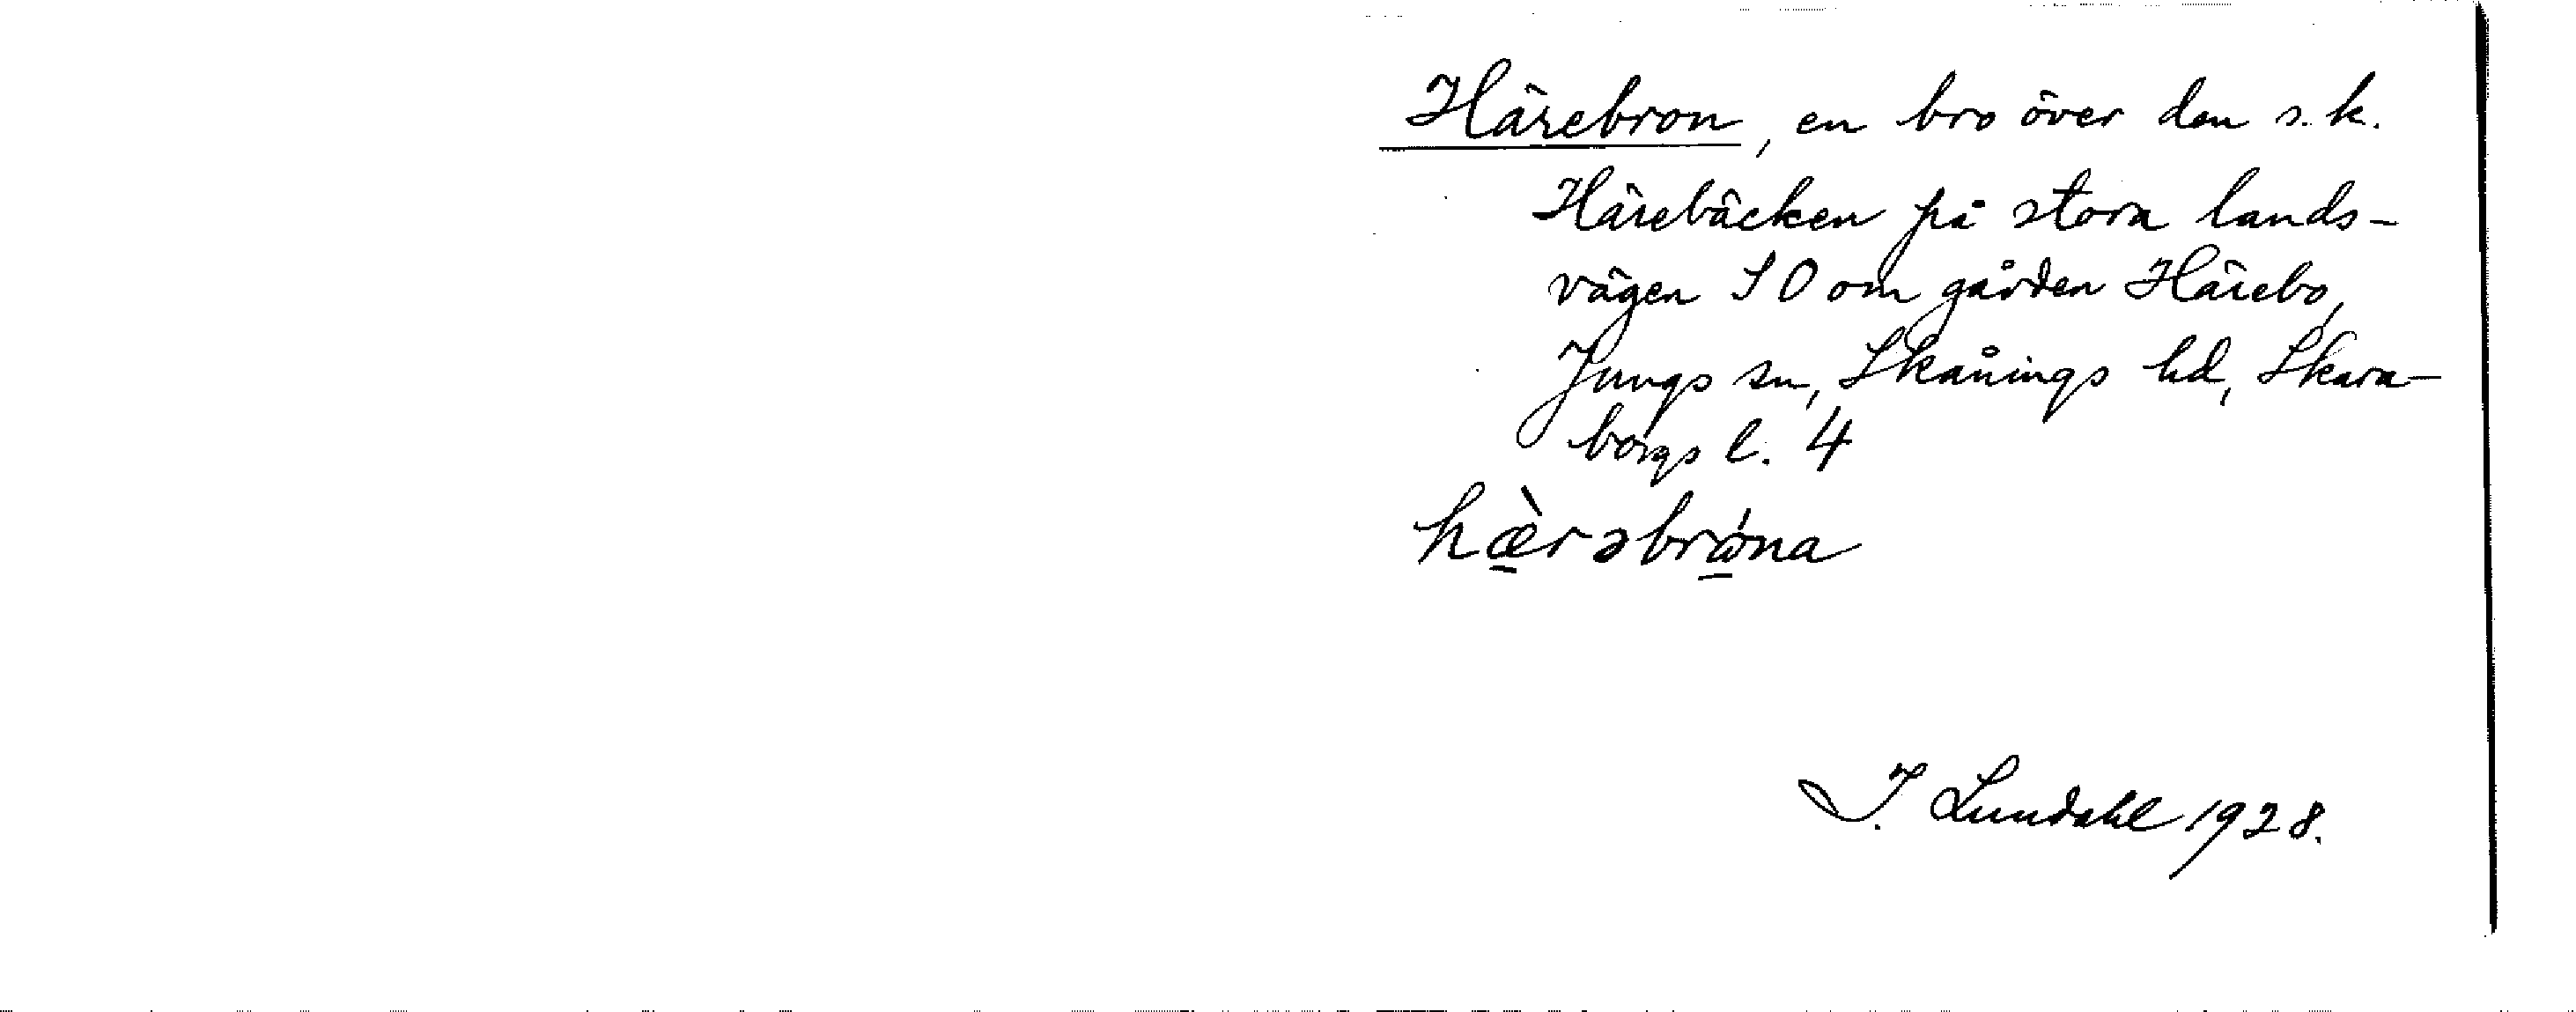 Härebron, en bro över den s.k.
Härebäcken på stora lands-
vägen SO om gården Härebo,
Jungs sn, Skånings hd, Skara-
borgs l. 4
hæ̀rəbrǿna
I. Lundahl 1928.